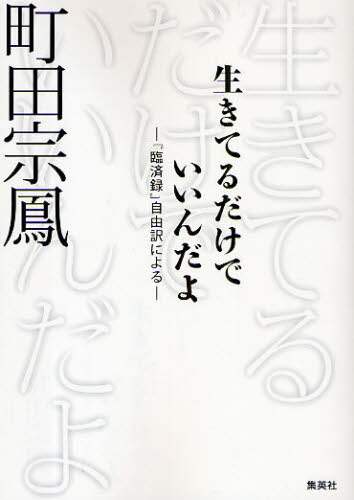 生きてるだけで
いいんだよ
―『臨済録』自由訳による―
町田宗鳳
生きてる
だけで
いいんだよ
集英社